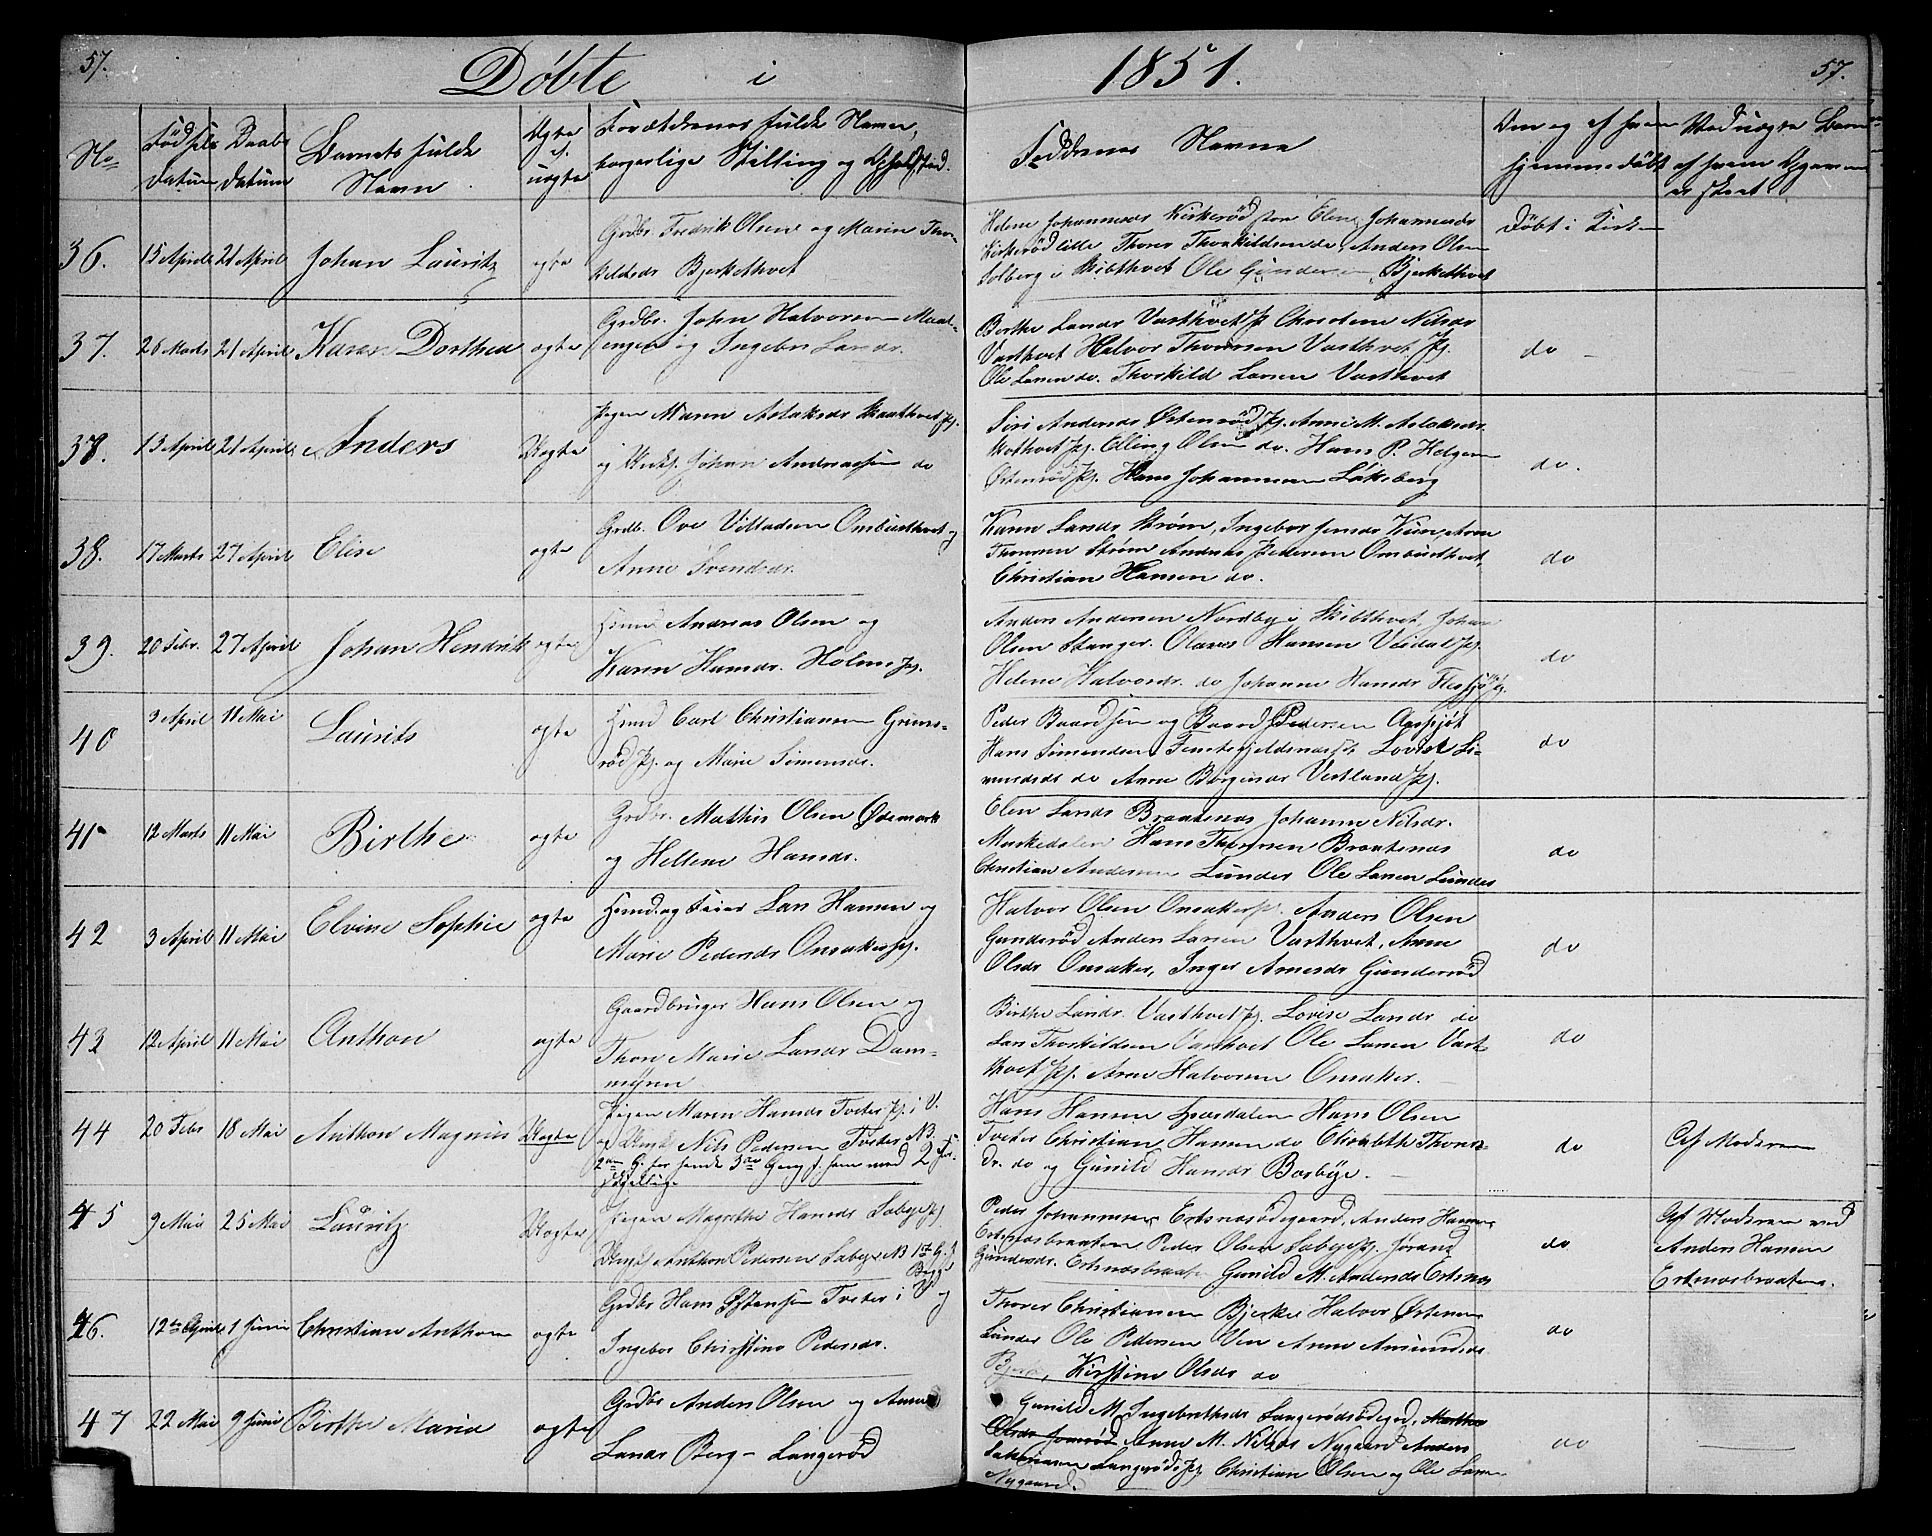 57.
Döbte i 1851.
57.
No
Födsels Datum
Daabs Datum
Barnets fulde Navn.
Ægte el. uægte
Forældrenes fulde Navn, borgerlige Stilling og Opholdsted.
Faddrenes Navne
Om og af hvem hjemmedöbt
Ved uægte Børn af hvem
36. 15 April 21 April Johan Lauritz ægte
Grdbr. Fredrik Olsen og Maren Thor-
kildsdr Bjerkethvet
Helene Johannesdr Kirkeröd store Elene Johannesdr
Kirkeröd lille Thorer Thorkildsen do, Anders Olsen
Solberg i Skibthvet Ole Gundersen, Bjerkethvet
Döbt i Kirken
37. 26 Marts 21 April Karen Dorthea ægte
Grdbr. John Halvorsen
og Ingebr Larsdr.
Berthe Larsdr Vasthvet Pl. Christene Nilsdr
Vasthvet Halvor Thomesen Vasthvet Pl.
Ole Larsen do. Thorkild Larsen Vasthvet
do
38. 13 April 21 April Anders Uægte
Pigen Maren Aslaksdr Skotthvet Pl.
og Ungk. Johan Andreassen do
Siri Andersdr Östensröd Pl. Anne M. Aslaksdr
Skotthvet Pl. Elling Olsen do. Hans P. Helgesen
Östensröd Pl. Hans Johannesen
do.
38. 17 Marts 27 April Elise ægte
Grdb. Ove Ombusthvet og
Anne Svendsdr.
Karen Larsdr Ström, Ingebor Jensdr
Thomesen Ström Andreas Pedersen Ombusthvet,
Christian Hansen do.
do
39. 20 Febr. 27 April Johan Hendrik ægte
Huusm Andreas Olsen og
Karen Hansdr. Holene Pl.
Anders Andersen Nordby i Skibthvet, Johan
Olsen Stanger. Olaves Hansen Veidal Pl.
Helene Halvorsdr. do Johanne Hansdr
do
40 3 April 11 Mai Laurits ægte
Huusm Carl Christiansen Grims-
röd Pl. og Marie Simensdr.
Peder Baardsen og Baard Pedersen
Hans Simensen Lovise Si-
mensdr do Anne Börgersdr Vestland Pl.
do
41 12 Marts 11 Mai Birthe ægte
Grdbr. Mathis Olsen Ödemark
og Hellene Hansdr.
Elen Larsdr Braatenes Johanne Nilsdr.
Muskedalen Hans Thomesen Braatenes
Christian Andersen Lunder Ole Larsen Lunder
do
42 3 April 11 Mai Elvine Sophie ægte
Huusm. og Lars Hansen og
Marie Pedersdr Onsaker Pl.
Halvor Olsen Onsaker Pl. Anders Olsen
Gunderöd Anders Larsen Vasthvet, Anne
Olsdr Onsaker, Inger Arnesdr Gunderröd
do
43 12 April 11 Mai Anthon ægte
Gaardbruger Hans Olsen og
Thore Marie Larsdr Dam-
myren
Birthe Larsdr. Vasthvet Pl. Lovise Larsdr do
Lars Thorkildsen Vasthvet Ole Larsen Vast-
thvet Pl. Arne Halvorsen Onsaker.
do
44 20 Febr 18 Mai Anthon Magnus Uægte
Pigen Maren Hansdr Tveter Pl. i V.
og Ungk Nils Pedersen Tveter NB.
2den G. for hende 3die Gang f. ham med 2 for-
skjellige
Hans Hansen Hvasdalen Hans Olsen
Tveter Christian Hansen do Elisabeth Thores-
dr. do og Gunild Hansdr Borbye.
do
Af Moderen
45 9 Mai 25 Mai Lauritz Uægte
Pigen Magrethe Hansdr Sabye Pl.
Ungk Anthon Pedersen Sabye NB 1ste G. f.
Begge
Peder Johannesen Ertsnæsödegaard, Anders Hansen
Ertsnæsbraaten Peder Olsen Sabye Pl. Jörand
Gundersdr. Ertsnæsbraaten Gunild M. Andersdr Ertsnæs
do
Af Moderen med
Anders Hansen
Ertsnæsbraaten.
46. 12te April 1 Juni Christian Anthon ægte
Grdbr Hans Östensen Tveter i V og
Ingebor Christine Pedersdr.
Thorer Christiansen Bjerke Halvor Östensen
Lunder Ole Pedersen Ven Anne Amundsdr
Bjerke, Kirstine Olsdr do
do
47 22 Mai 9 Juni Birthe Maria ægte
Grdbr Anders Olsen og Anne
Larsdr Berg - Langeröd
Gunild M. Ingebrethsdr Langerödödegrd, Marthe
Olsdr Anne M. Nilsdr Nygaard Anders
Langeröd Pl Christian Olsen og Ole Larsen
Nygaard.
do